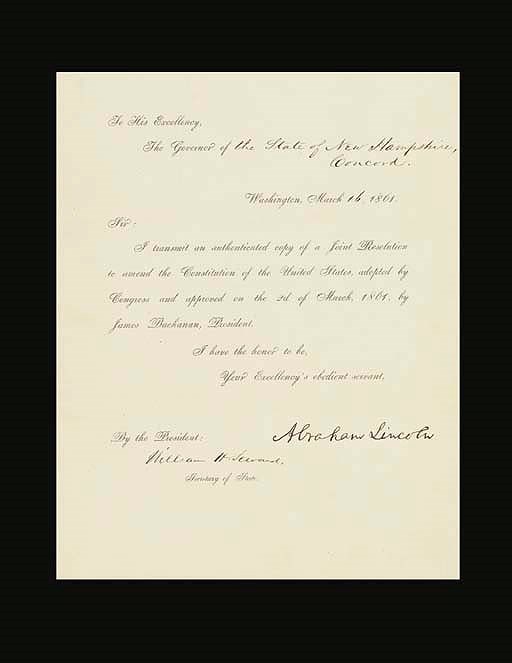 To His Excellency,
The Governor of the State of New Hampshire,
Concord.
Washington, March 16, 1861.
Sir:
I transmit an authenticated copy of a Joint Resolution
to amend the Constitution of the United States, adopted by
Congress and approved on the 2d of March, 1861, by
James Buchanan, President.
I have the honor to be,
Your Excellency's obedient servant,
Abraham Lincoln
By the President:
William H. Seward,
Secretary of State.